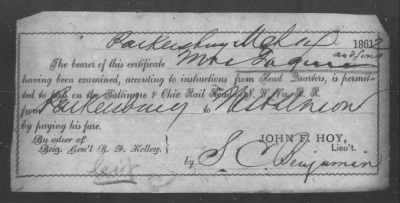 Parkersburg Mch 1863
The bearer of this certificate Mrs and Son
having been examined, according to instructions from Head Quarters, is permit-
ted to on the Baltimore & Ohio Rail Road & N. W. Va. R. R.
from Parkersburg to
by paying his fare.
By order of
Brig. Gen'l B. F. Kelley.
JOHN F. HOY,
Lieut.
by S. C. Benjamin